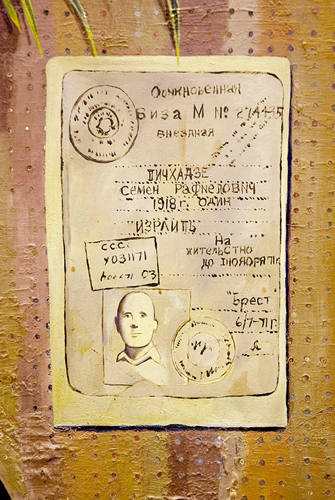 Обчкновенная
Виза М № 274435
внездная
ПИЧХАДЗЕ
СЕМЕН РАФИЕЛОВИЧ
1918 г. ОДИН
ИЗРАИЛЬ
На
жительство
до 1 ноября 71г.
ССС.
У031171
03
Брест
6/7-71г.